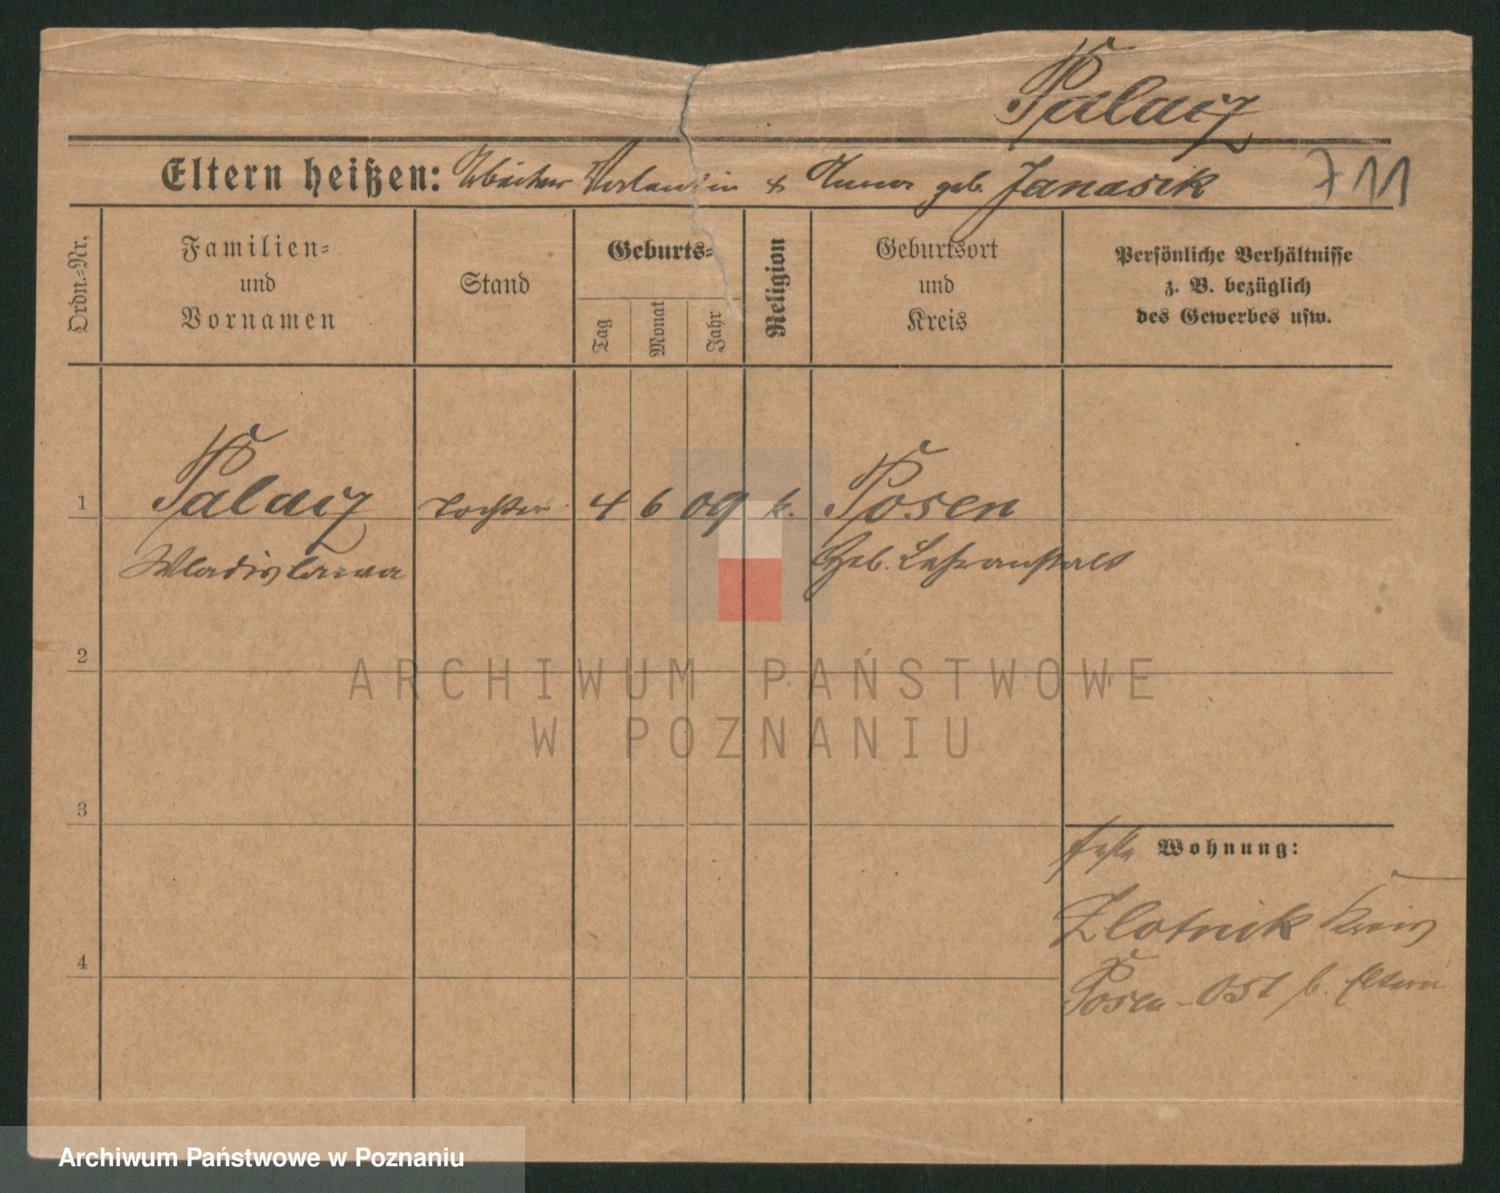 Palacz
Eltern heißen: Wächter Valentin & Anna geb. Janasik 711
Ordn.=Nr.
Familien=
und
Vornamen
Stand
Geburts=
Tag
Monat
Jahr
Religion
Geburtsort
und
Kreis
Persönliche Verhältnisse
z. B. bezüglich
des Gewerbes usw.
1 Palacz Tochter 4 6 09 k. Posen
Wladislawa Heb. Lehranstalt
2
ARCHIWUM PAŃSTWOWE
W POZNANIU
3
feste Wohnung:
Zlotnik Kreis
4
Posen-Ost b. Eltern
Archiwum Państwowe w Poznaniu